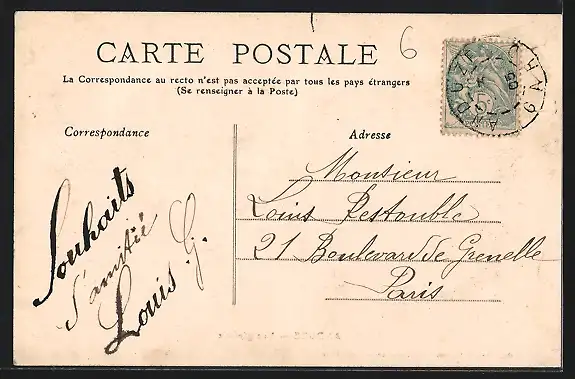 6
CARTE POSTALE
La Correspondance au recto n'est pas acceptée par tous les pays étrangers
(Se renseigner à la Poste)
Correspondance
Adresse
Souhaits
d'amitié
Louis G.
Monsieur
Louis Restouble
21 Boulevard de Grenelle
Paris